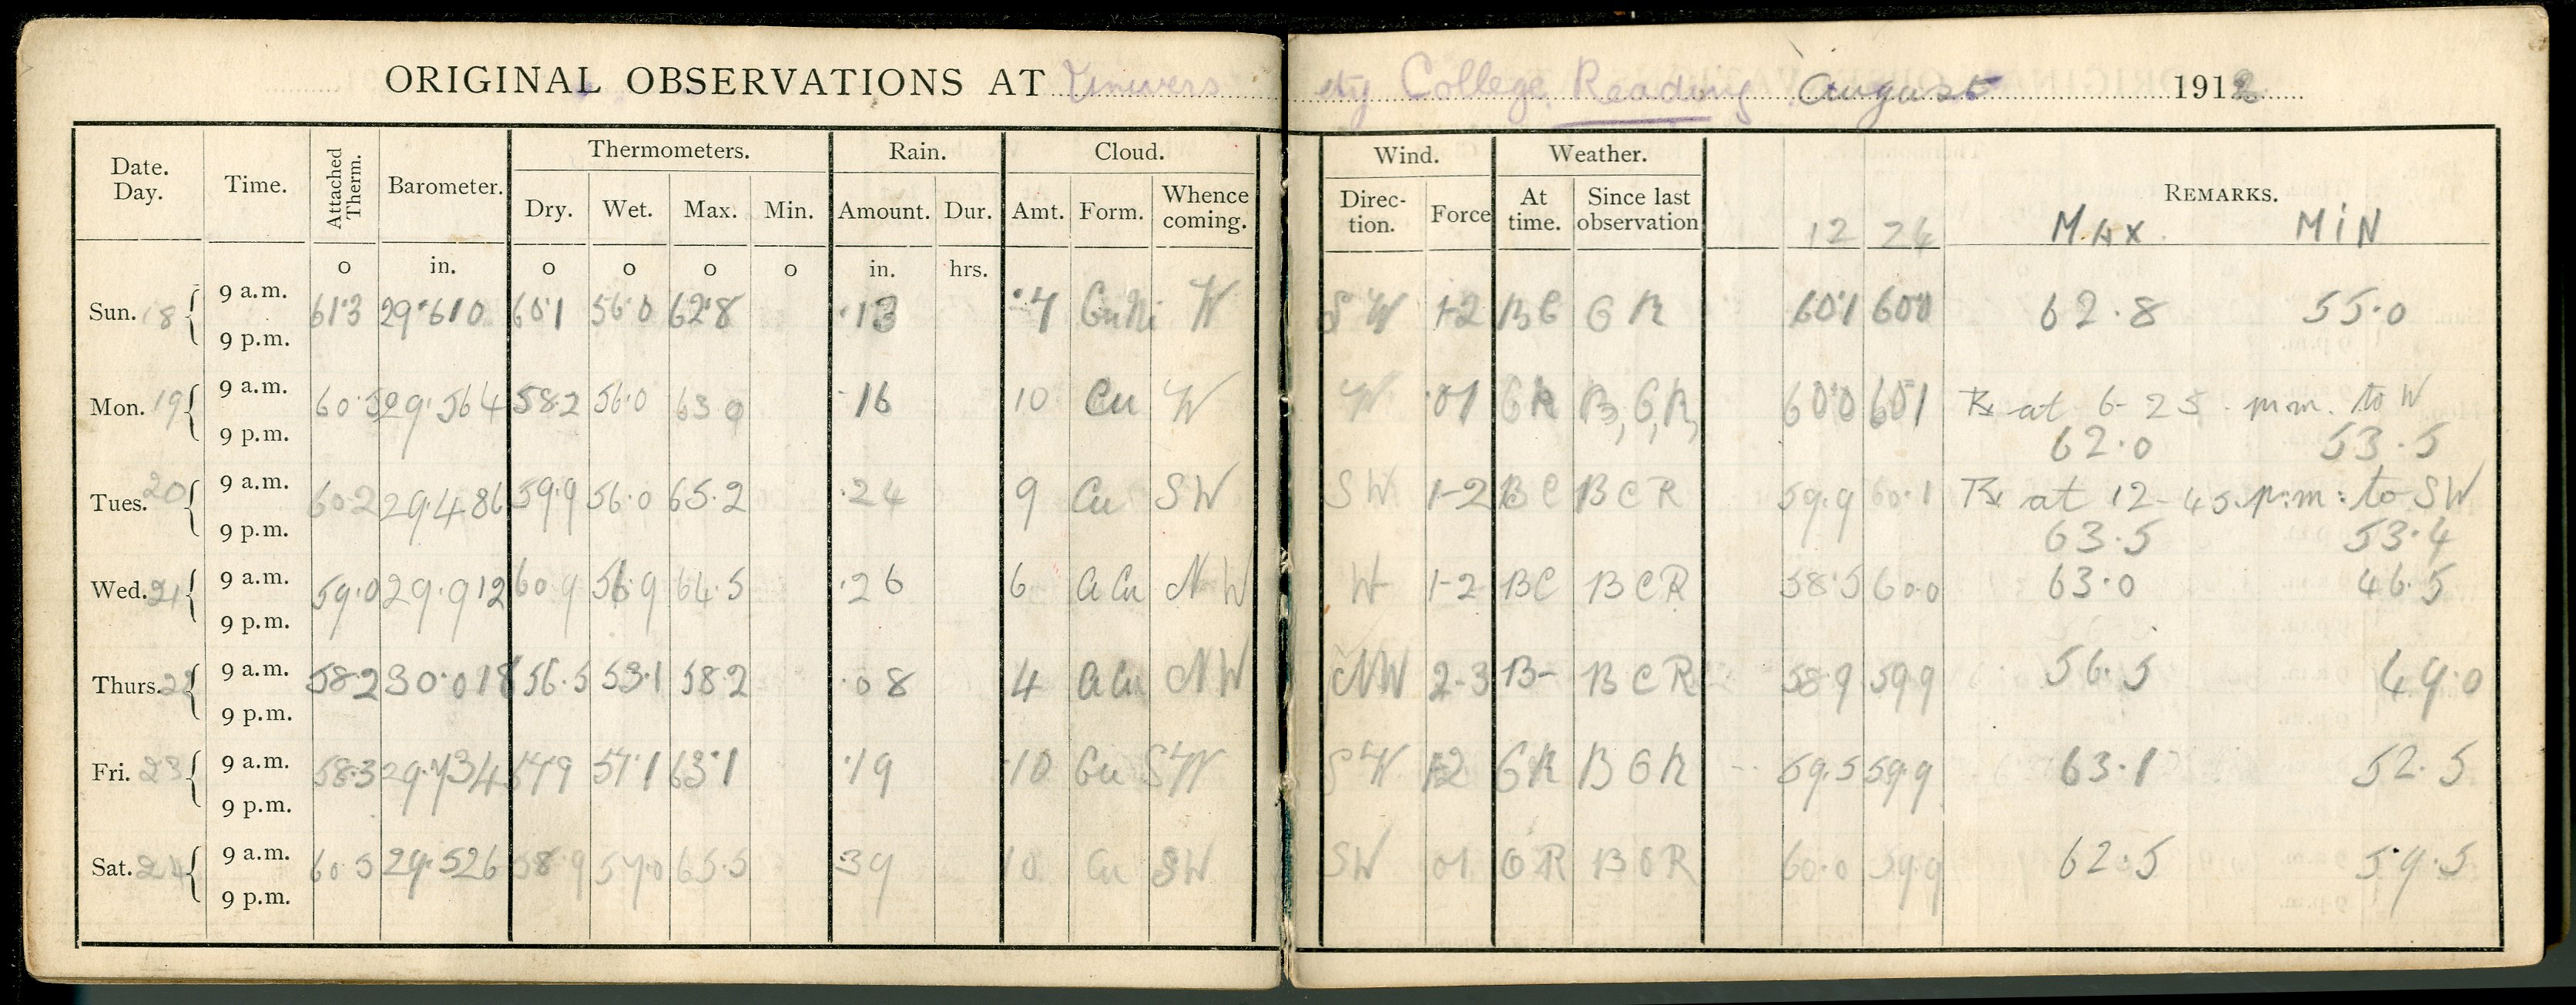 ORIGINAL OBSERVATIONS AT University College Reading August 1912
Date. Day. Time. Attached Therm. Barometer. Thermometers. Rain. Cloud. Wind. Weather. REMARKS.
Dry. Wet. Max. Min. Amount. Dur. Amt. Form. Whence coming. Direc- tion. Force At time. Since last observation 12 24 MAX. MIN
o in. o o o o in. hrs.
Sun. 18 9 a.m. 61.3 29.610 60.1 56.0 62.8 .13 7 CuNi W SW 1-2 BC C R 60.1 60.0 62.8 55.0
9 p.m.
Mon. 19 9 a.m. 60.5 29.564 58.2 56.0 63.0 .16 10 Cu W W 01 CR B, C, R, 60.0 60.1 at 6-25 p.m. to W
9 p.m. 62.0 53.5
Tues. 20 9 a.m. 60.2 29.486 59.9 56.0 65.2 .24 9 Cu SW SW 1-2 BC BCR 59.9 60.1 at 12-45 p.m. to SW
9 p.m. 63.5 53.4
Wed. 21 9 a.m. 59.0 29.912 60.9 56.9 64.5 .26 6 A Cu NW W 1-2 BC BCR 58.5 60.0 63.0 46.5
9 p.m.
Thurs. 22 9 a.m. 58.2 30.018 56.5 53.1 58.2 .08 4 A Cu NW NW 2-3 B- BCR 58.9 59.9 56.5 49.0
9 p.m.
Fri. 23 9 a.m. 58.3 29.734 57.1 63.1 .19 10 Cu SW SW 1-2 CR BCR 59.5 59.9 63.1 52.5
9 p.m.
Sat. 24 9 a.m. 60.5 29.526 58.9 57.0 65.5 .39 10 Cu SW SW 01 OR BOR 60.0 59.9 62.5 59.5
9 p.m.